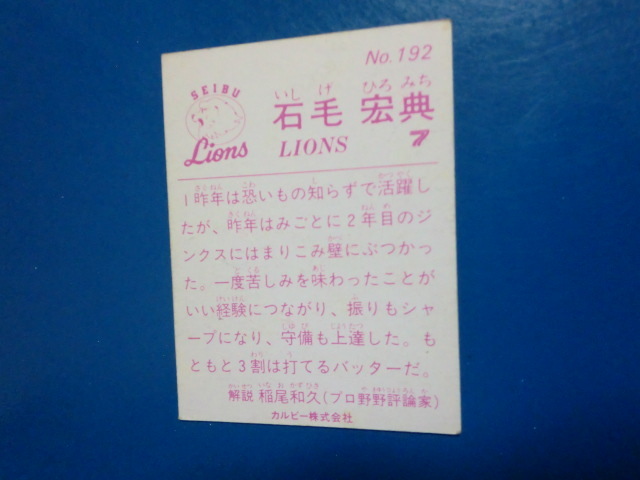 No.192
SEIBU
Lions
いし げ ひろ みち
石毛 宏典
LIONS 7
1昨年は恐いもの知らずで活躍し
たが、昨年はみごとに2年目のジ
ンクスにはまりこみ壁にぶつかっ
た。一度苦しみを味わったことが
いい経験につながり、振りもシャ
ープになり、守備も上達した。も
ともと3割は打てるバッターだ。
解説 稲尾和久(プロ野野評論家)
カルビー株式会社